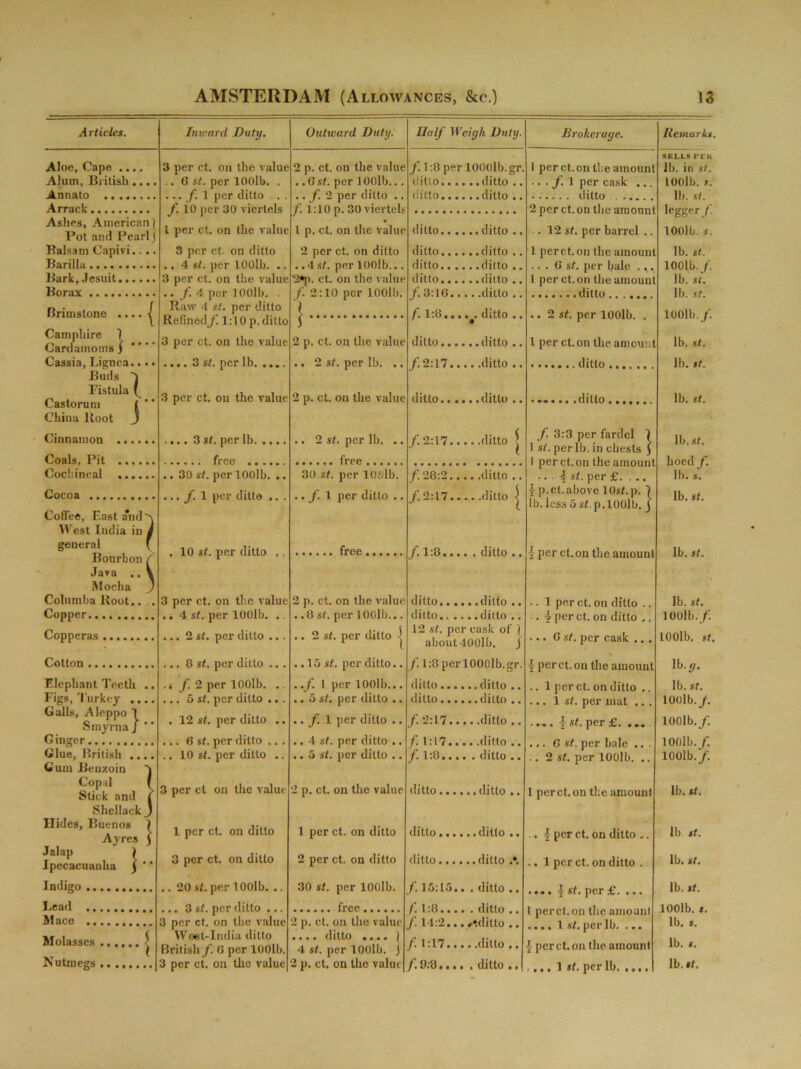 AMSTERDAM (Allowances, &c.) 13
Articles. Inward Duty. Outward Duty. Half Weigh Duty. Brokerage. Remarks.
SELLS PER
Aloe, Cape .... 3 per ct. on the value 2 p. ct. on the value f. 1:8 per 1000lb.gr. 1 per ct. on the amount lb. in st.
Alum, British .... .. 6 st. per 100lb. . ..6 st. per 100lb... ditto......ditto .. ... f. 1 per cask ... 100lb. s.
Annato ........ ... f. 1 per ditto ... .. f. 2 per ditto .. ditto......ditto .. ...... ditto ...... lb. st.
Arrack......... f. 10 per 30 viertels f. 1:10 p. 30 viertels .................. 2 per ct. on the amount legger f.
Ashes, American } Pot and Pearl } 1 per ct. on the value 1 p. ct. on the value ditto......ditto .. . 12 st. per barrel .. 100lb. s.
Balsam Capivi.... 3 per ct. on ditto 2 per ct. on ditto ditto......ditto .. 1 per ct. on the amount lb. st.
Barilla .......... .. 4 st. per 100lb. .. ..4 st. per 100lb... ditto......ditto .. ... 6 st. per bale ... 100lb. f.
Bark, Jesuit...... 3 per ct. on the value 2 p. ct. on the value ditto......ditto .. 1 per ct. on the amount lb. st.
Borax .......... .. f. 4 per 100lb. . f. 2:10 per 100lb. f. 3:16.....ditto .. ........ditto ....... lb. st.
Brimstone .... { Raw 4 st. per ditto } f. 1:8...... ditto .. .. 2 st. per 100lb. . 100lb. f.
Refined f. 1:10 p. ditto
Camphire } Cardamoms } .... 3 per ct. on the value 2 p. ct. on the value ditto......ditto .. 1 per ct. on the amount lb. st.
Cassia, Lignea.... .... 3 st. per lb. .... .. 2 st. per lb. .. f. 2:17.....ditto .. .......ditto ....... lb. st.
Buds }
Fistula }
Castorum } .. 3 per ct. on the value 2 p. ct. on the value ditto......ditto .. .......ditto ....... lb. st.
China Root }
Cinnamon ...... .... 3 st. per lb. .... .. 2 st. per lb. .. f. 2:17.....ditto { f. 3:3 per fardel } lb. st.
1 st. per lb. in chests }
Coals, Pit ...... ...... free ...... ...... free ...... .................. 1 per ct. on the amount hoed f.
Cochineal ...... .. 30 st. per 100lb. .. 30 st. per 100lb. f. 28:2.....ditto .. ... ½ st. per £. ... lb. s.
Cocoa .......... ... f. 1 per ditto ... .. f. 1 per ditto .. f. 2:17.....ditto { ½ p. ct. above 10 st. p. } lb. st.
lb. less 5 st. p. 100lb. }
Coffee, East and }
West India in }
general }
Bourbon } . 10 st. per ditto .. ...... free ...... f. 1:8..... ditto .. ½ per ct. on the amount lb. st.
Java .. }
Mocha }
Columba Root.... 3 per ct. on the value 2 p. ct. on the value ditto......ditto .. .. 1 per ct. on ditto .. lb. st.
Copper.......... .. 4 st. per 100lb. .. ..8 st. per 100lb... ditto......ditto .. .. ½ per ct. on ditto .. 100lb. f.
Copperas ........ ... 2 st. per ditto ... .. 2 st. per ditto { 12 st. per cask of } about 400lb. } ... 6 st. per cask ... 100lb. st.
Cotton .......... ... 8 st. per ditto ... ..15 st. per ditto.. f. 1:8 per 1000lb.gr. ½ per ct. on the amount lb. g.
Elephant Teeth .. .. f. 2 per 100lb. .. ..f. 1 per 100lb... ditto......ditto .. .. 1 per ct. on ditto .. lb. st.
Figs, Turkey .... ... 5 st. per ditto ... .. 5 st. per ditto .. ditto......ditto .. ... 1 st. per mat ... 100lb. f.
Galls, Aleppo } Smyrna } .. . 12 st. per ditto .. .. f. 1 per ditto .. f. 2:17.....ditto .. .... ½ st. per £. ... 100lb. f.
Ginger .......... ... 6 st. per ditto ... .. 4 st. per ditto .. f. 1:17.....ditto .. ... 6 st. per bale ... 100lb. f.
Glue, British .... .. 10 st. per ditto .. .. 5 st. per ditto .. f. 1:8..... ditto .. .. 2 st. per 100lb. .. 100lb. f.
Gum Benzoin }
Copal }
Stick and } 3 per ct on the value 2 p. ct. on the value ditto......ditto .. 1 per ct. on the amount lb. st.
Shellack }
Hides, Buenos } Ayres } 1 per ct. on ditto 1 per ct. on ditto ditto......ditto .. . ½ per ct. on ditto .. lb. st.
Jalap } Ipecacuanha } .. 3 per ct. on ditto 2 per ct. on ditto ditto......ditto .. .. 1 per ct. on ditto . lb. st.
Indigo .......... .. 20 st. per 100lb. .. 30 st. per 100lb. f. 15:15... ditto .. .... ½ st. per £. ... lb. st.
Lead .......... ... 3 st. per ditto ... ...... free ...... f. 1:8..... ditto .. 1 per ct. on the amount 100lb. s.
Mace .......... 3 per ct. on the value 2 p. ct. on the value f. 14:2....ditto .. .... 1 st. per lb. ... lb. s.
Molasses ...... { West-India ditto .... ditto .... } f. 1:17.....ditto .. ½ per ct. on the amount lb. s.
British f. 6 per 100lb. 4 st. per 100lb. }
Nutmegs ........ 3 per ct. on the value 2 p. ct. on the value f. 9:8..... ditto .. .... 1 st. per lb. .... lb. st.